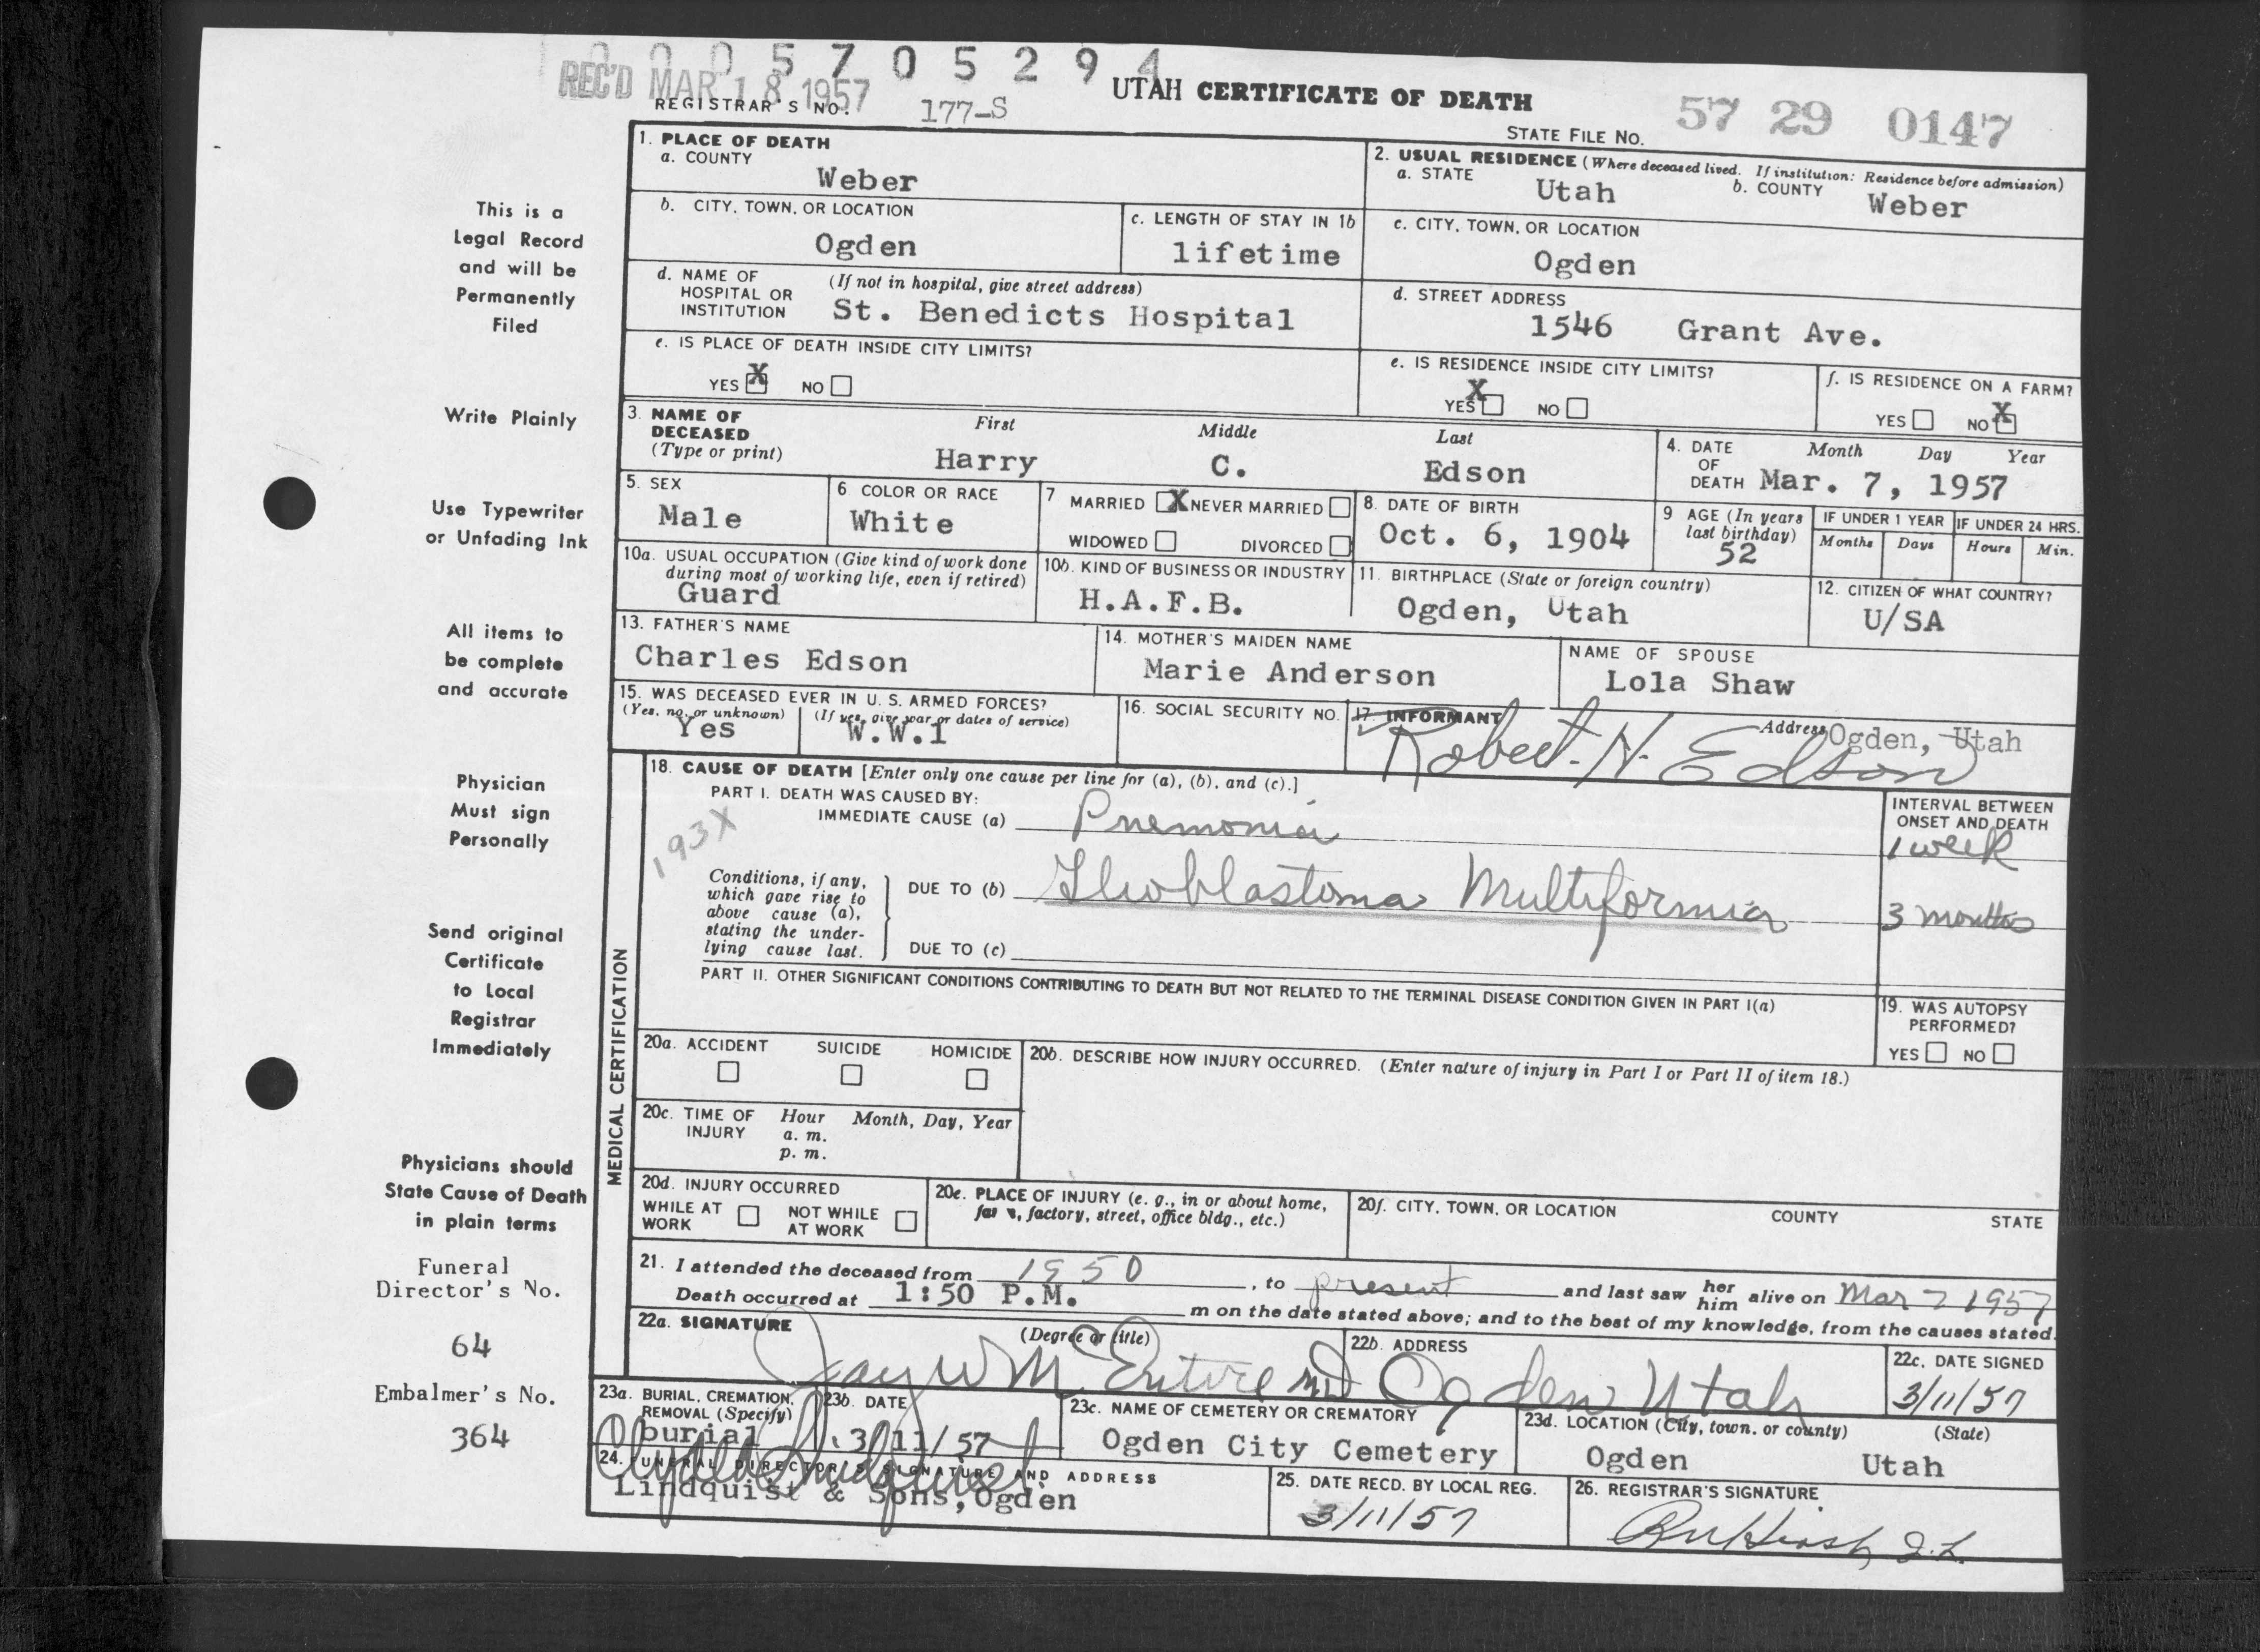 0 0 0 5 7 0 5 2 9 4
REC'D MAR 18 1957
REGISTRAR'S NO. 177-S
UTAH CERTIFICATE OF DEATH
STATE FILE NO. 57 29 0147
This is a
Legal Record
and will be
Permanently
Filed
Write Plainly
Use Typewriter
or Unfading Ink
All items to
be complete
and accurate
Physician
Must sign
Personally
Send original
Certificate
to Local
Registrar
Immediately
Physicians should
State Cause of Death
in plain terms
Funeral
Director's No.
64
Embalmer's No.
364
1. PLACE OF DEATH
a. COUNTY
Weber
2. USUAL RESIDENCE (Where deceased lived. If institution: Residence before admission)
a. STATE Utah b. COUNTY Weber
b. CITY, TOWN, OR LOCATION
Ogden
c. LENGTH OF STAY IN 1b
lifetime
c. CITY, TOWN, OR LOCATION
Ogden
d. NAME OF (If not in hospital, give street address)
HOSPITAL OR
INSTITUTION St. Benedicts Hospital
d. STREET ADDRESS
1546 Grant Ave.
e. IS PLACE OF DEATH INSIDE CITY LIMITS?
YES X NO
e. IS RESIDENCE INSIDE CITY LIMITS?
YES X NO
f. IS RESIDENCE ON A FARM?
YES NO X
3. NAME OF DECEASED (Type or print)
First Middle Last
Harry C. Edson
4. DATE OF DEATH Month Day Year
Mar. 7, 1957
5. SEX
Male
6 COLOR OR RACE
White
7 MARRIED X NEVER MARRIED
WIDOWED DIVORCED
8. DATE OF BIRTH
Oct. 6, 1904
9 AGE (In years last birthday)
52
IF UNDER 1 YEAR
Months Days
IF UNDER 24 HRS.
Hours Min.
10a. USUAL OCCUPATION (Give kind of work done
during most of working life, even if retired)
Guard
10b. KIND OF BUSINESS OR INDUSTRY
H.A.F.B.
11. BIRTHPLACE (State or foreign country)
Ogden, Utah
12. CITIZEN OF WHAT COUNTRY?
U/SA
13. FATHER'S NAME
Charles Edson
14. MOTHER'S MAIDEN NAME
Marie Anderson
NAME OF SPOUSE
Lola Shaw
15. WAS DECEASED EVER IN U. S. ARMED FORCES?
(Yes, no, or unknown) (If yes, give war or dates of service)
Yes W.W.1
16. SOCIAL SECURITY NO.
17. INFORMANT Address Ogden, Utah
Robert. N. Edson
MEDICAL CERTIFICATION
18. CAUSE OF DEATH [Enter only one cause per line for (a), (b), and (c).]
PART I. DEATH WAS CAUSED BY:
IMMEDIATE CAUSE (a) Pnemonia
INTERVAL BETWEEN
ONSET AND DEATH
1 week
193X
Conditions, if any,
which gave rise to
above cause (a),
stating the under-
lying cause last.
DUE TO (b) Glioblastoma Multiformia
3 months
DUE TO (c)
PART II. OTHER SIGNIFICANT CONDITIONS CONTRIBUTING TO DEATH BUT NOT RELATED TO THE TERMINAL DISEASE CONDITION GIVEN IN PART I(a)
19. WAS AUTOPSY
PERFORMED?
YES NO
20a. ACCIDENT SUICIDE HOMICIDE
20b. DESCRIBE HOW INJURY OCCURRED. (Enter nature of injury in Part I or Part II of item 18.)
20c. TIME OF INJURY Hour Month, Day, Year
a. m.
p. m.
20d. INJURY OCCURRED
WHILE AT WORK NOT WHILE AT WORK
20e. PLACE OF INJURY (e. g., in or about home,
factory, street, office bldg., etc.)
20f. CITY, TOWN, OR LOCATION COUNTY STATE
21. I attended the deceased from 1950, to present and last saw her him alive on Mar 7 1957
Death occurred at 1:50 P.M. m on the date stated above; and to the best of my knowledge, from the causes stated.
22a. SIGNATURE (Degree or title)
Jay W McEntire MD
22b. ADDRESS
Ogden Utah
22c. DATE SIGNED
3/11/57
23a. BURIAL, CREMATION,
REMOVAL (Specify)
burial
23b. DATE
3/11/57
23c. NAME OF CEMETERY OR CREMATORY
Ogden City Cemetery
23d. LOCATION (City, town, or county) (State)
Ogden Utah
24. FUNERAL DIRECTOR'S SIGNATURE AND ADDRESS
Lindquist & Sons, Ogden
25. DATE RECD. BY LOCAL REG.
3/11/57
26. REGISTRAR'S SIGNATURE